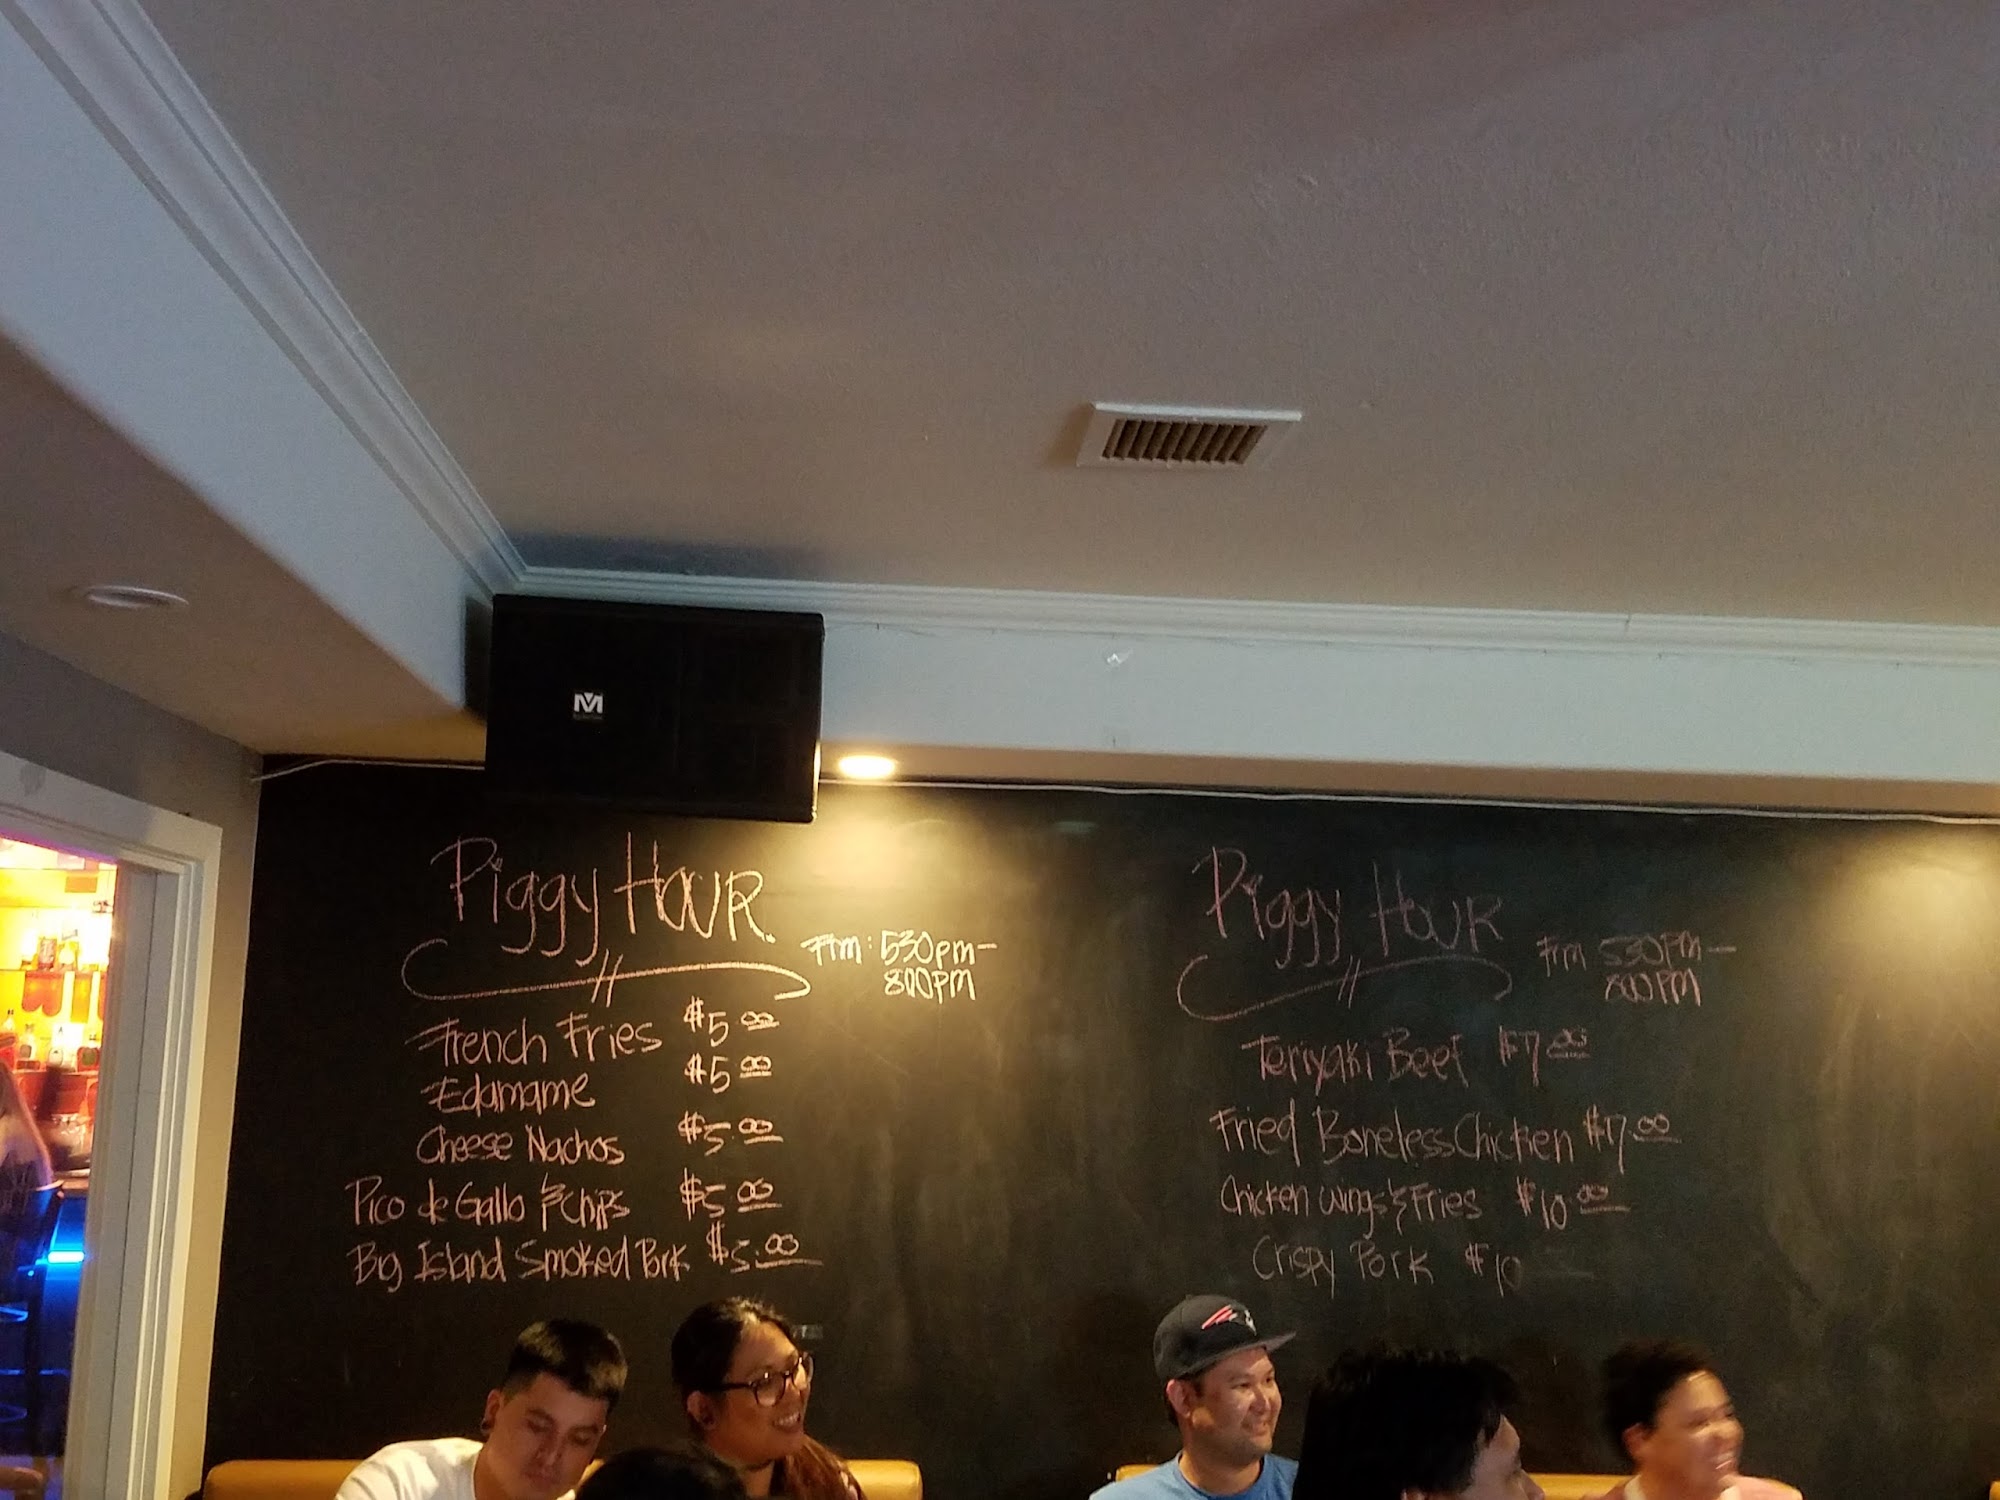 Piggy Hour
Frm: 530pm-
800pm
French Fries $5.00
Edamame $5.00
Cheese Nachos $5.00
Pico de Gallo & Chips $5.00
Big Island Smoked Pork $5.00
Piggy Hour
Frm 530pm-
800pm
Teriyaki Beef $7.00
Fried Boneless Chicken $7.00
Chicken Wings & Fries $10.00
Crispy Pork $10